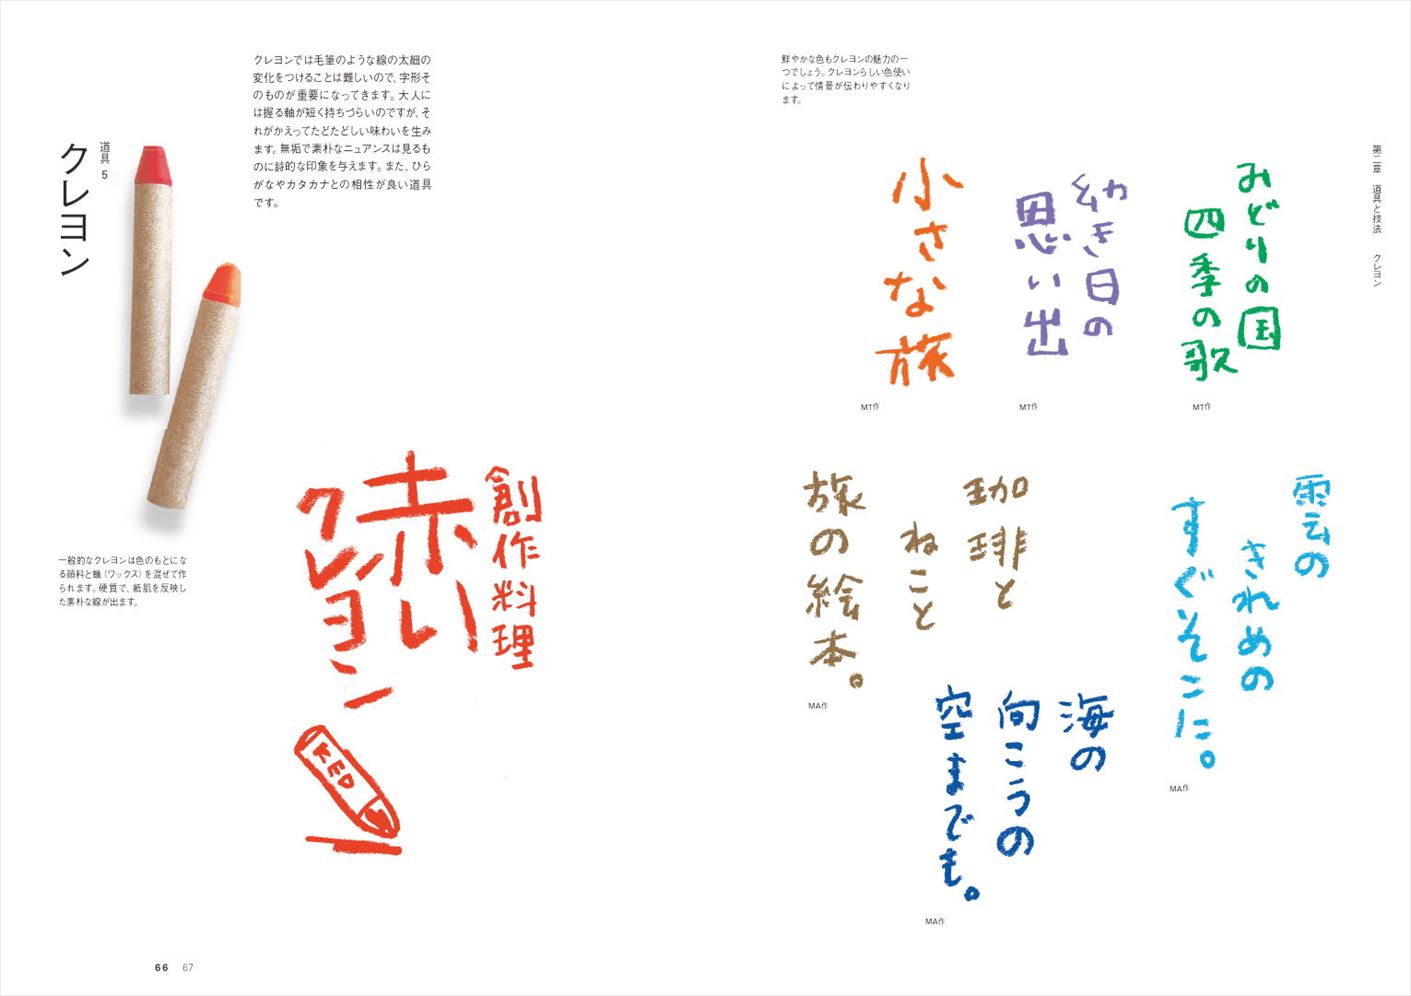 道具 5
クレヨン
クレヨンでは毛筆のような線の太細の
変化をつけることは難しいので、字形そ
のものが重要になってきます。大人に
は握る軸が短く持ちづらいのですが、そ
れがかえってたどたどしい味わいを生み
ます。無垢で素朴なニュアンスは見るも
のに詩的な印象を与えます。また、ひら
がなやカタカナとの相性が良い道具
です。
一般的なクレヨンは色のもとにな
る顔料と蠟（ワックス）を混ぜて作
られます。硬質で、紙肌を反映し
た素朴な線が出ます。
創作料理
赤い
クレヨン
RED
66 67
鮮やかな色もクレヨンの魅力の一
つでしょう。クレヨンらしい色使い
によって情景が伝わりやすくなり
ます。
第二章 道具と技法 クレヨン
みどりの国
四季の歌
MT作
幼き日の
思い出
MT作
小さな旅
MT作
雲の
きれめの
すぐそこに。
MA作
珈琲と
ねこと
旅の絵本。
MA作
海の
向こうの
空までも。
MA作